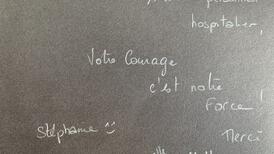 personnel
hospitalier,
Votre Courage
c'est notre
Force !
Stéphanie
Merci